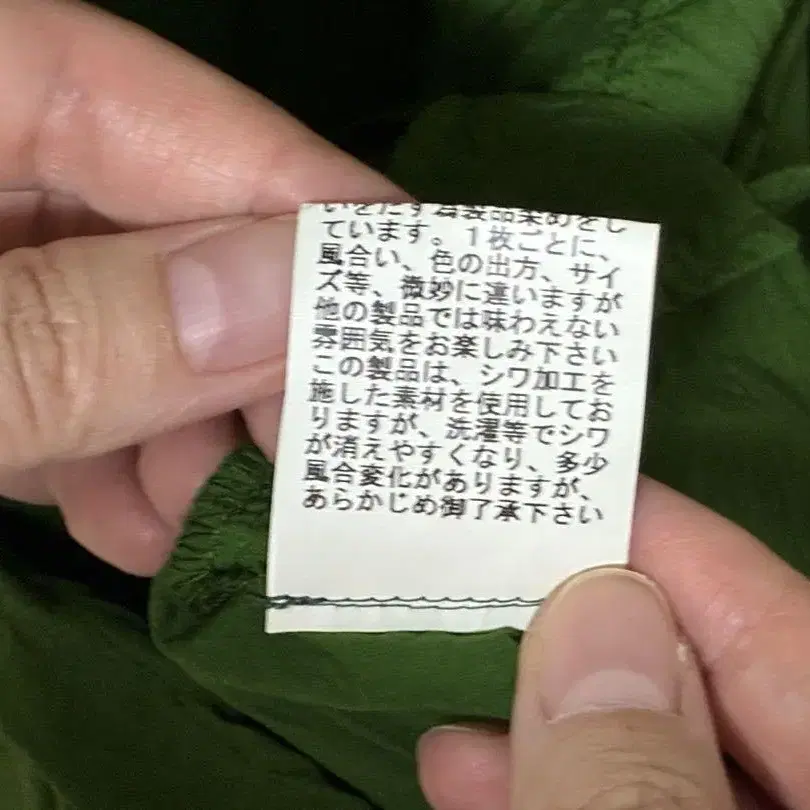 いをだす為製品染めをし
ています。１枚ごとに、
風合い、色の出方、サイ
ズ等、微妙に違いますが
他の製品では味わえない
雰囲気をお楽しみ下さい
この製品は、シワ加工を
施した素材を使用してお
りますが、洗濯等でシワ
が消えやすくなり、多少
風合変化がありますが、
あらかじめ御了承下さい